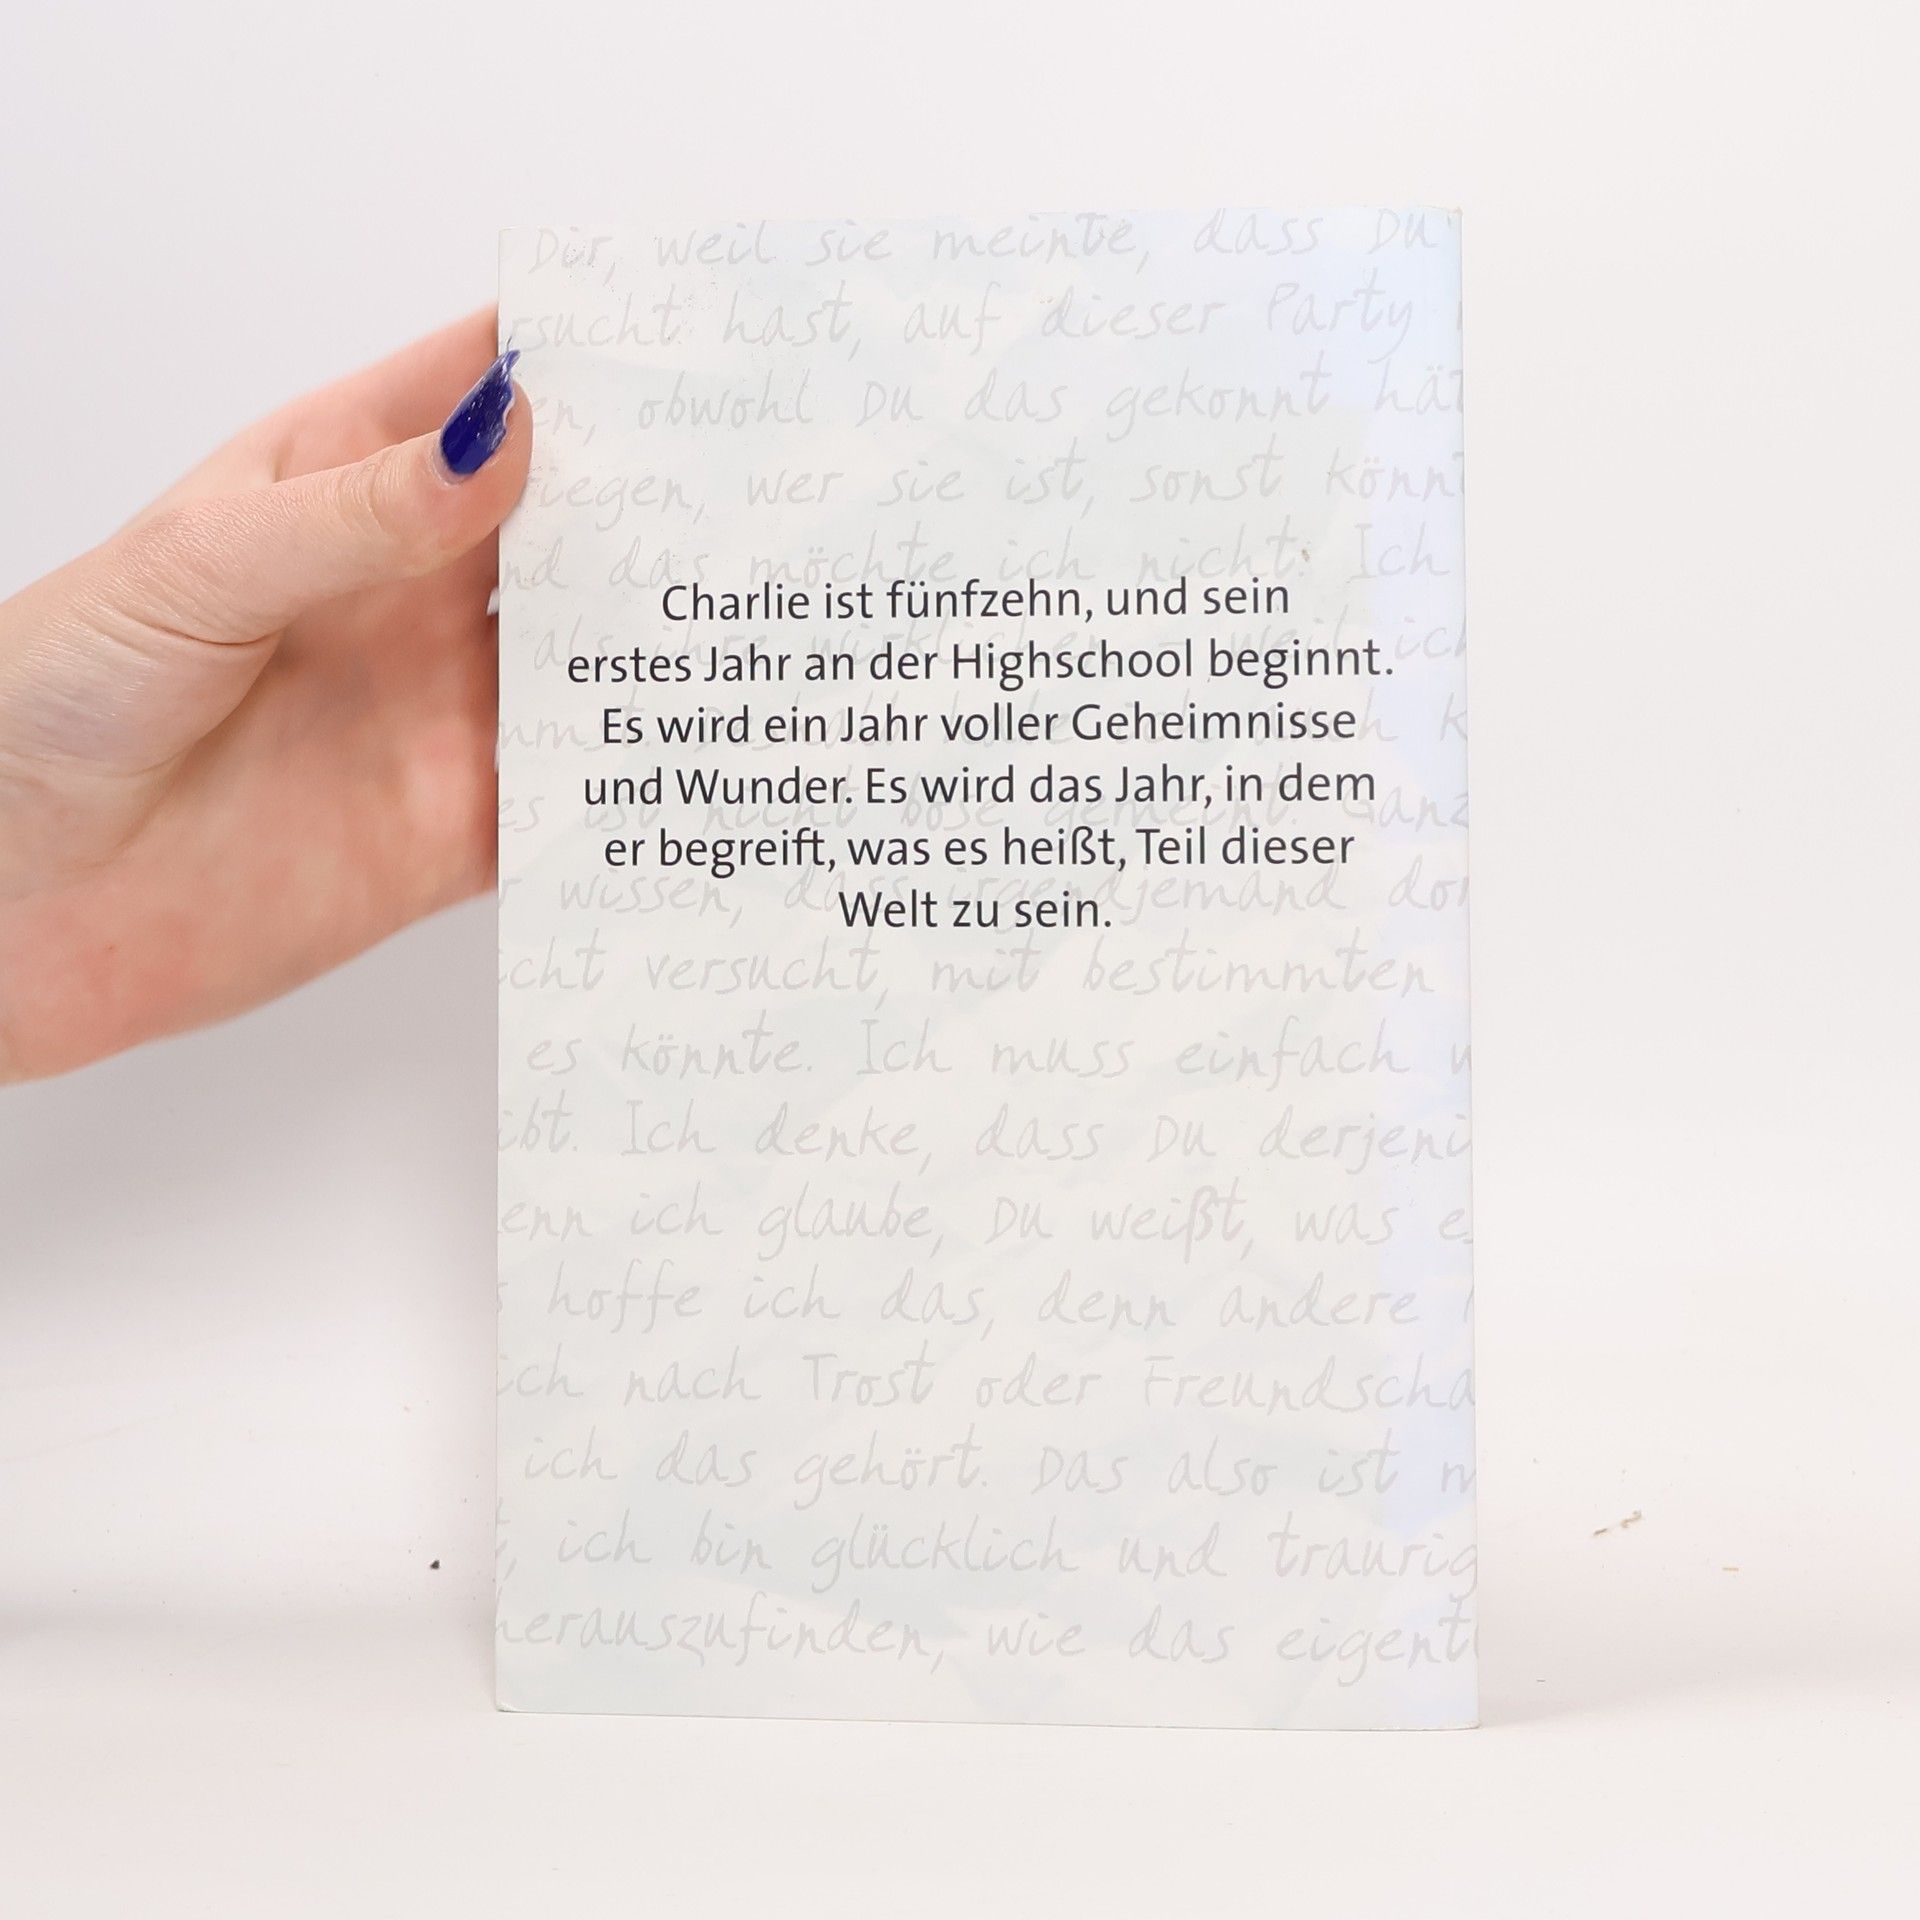 Dir, weil sie meinte, dass Du
rsucht hast, auf dieser Party
en, obwohl Du das gekonnt hät
riegen, wer sie ist, sonst könnt
nd das möchte ich nicht. Ich
Charlie ist fünfzehn, und sein
als ihre wirklichen – weil ich
erstes Jahr an der Highschool beginnt.
Es wird ein Jahr voller Geheimnisse
mmst. Deshalb habe ich auch k
und Wunder. Es wird das Jahr, in dem
es ist nicht böse gemeint. Ganz
er begreift, was es heißt, Teil dieser
r wissen, dass irgendjemand dor
Welt zu sein.
icht versucht, mit bestimmten
es könnte. Ich muss einfach w
ibt. Ich denke, dass Du derjeni
enn ich glaube, Du weißt, was es
s hoffe ich das, denn andere
ich nach Trost oder Freundscha
ich das gehört. Das also ist m
t, ich bin glücklich und traurig
herauszufinden, wie das eigentl